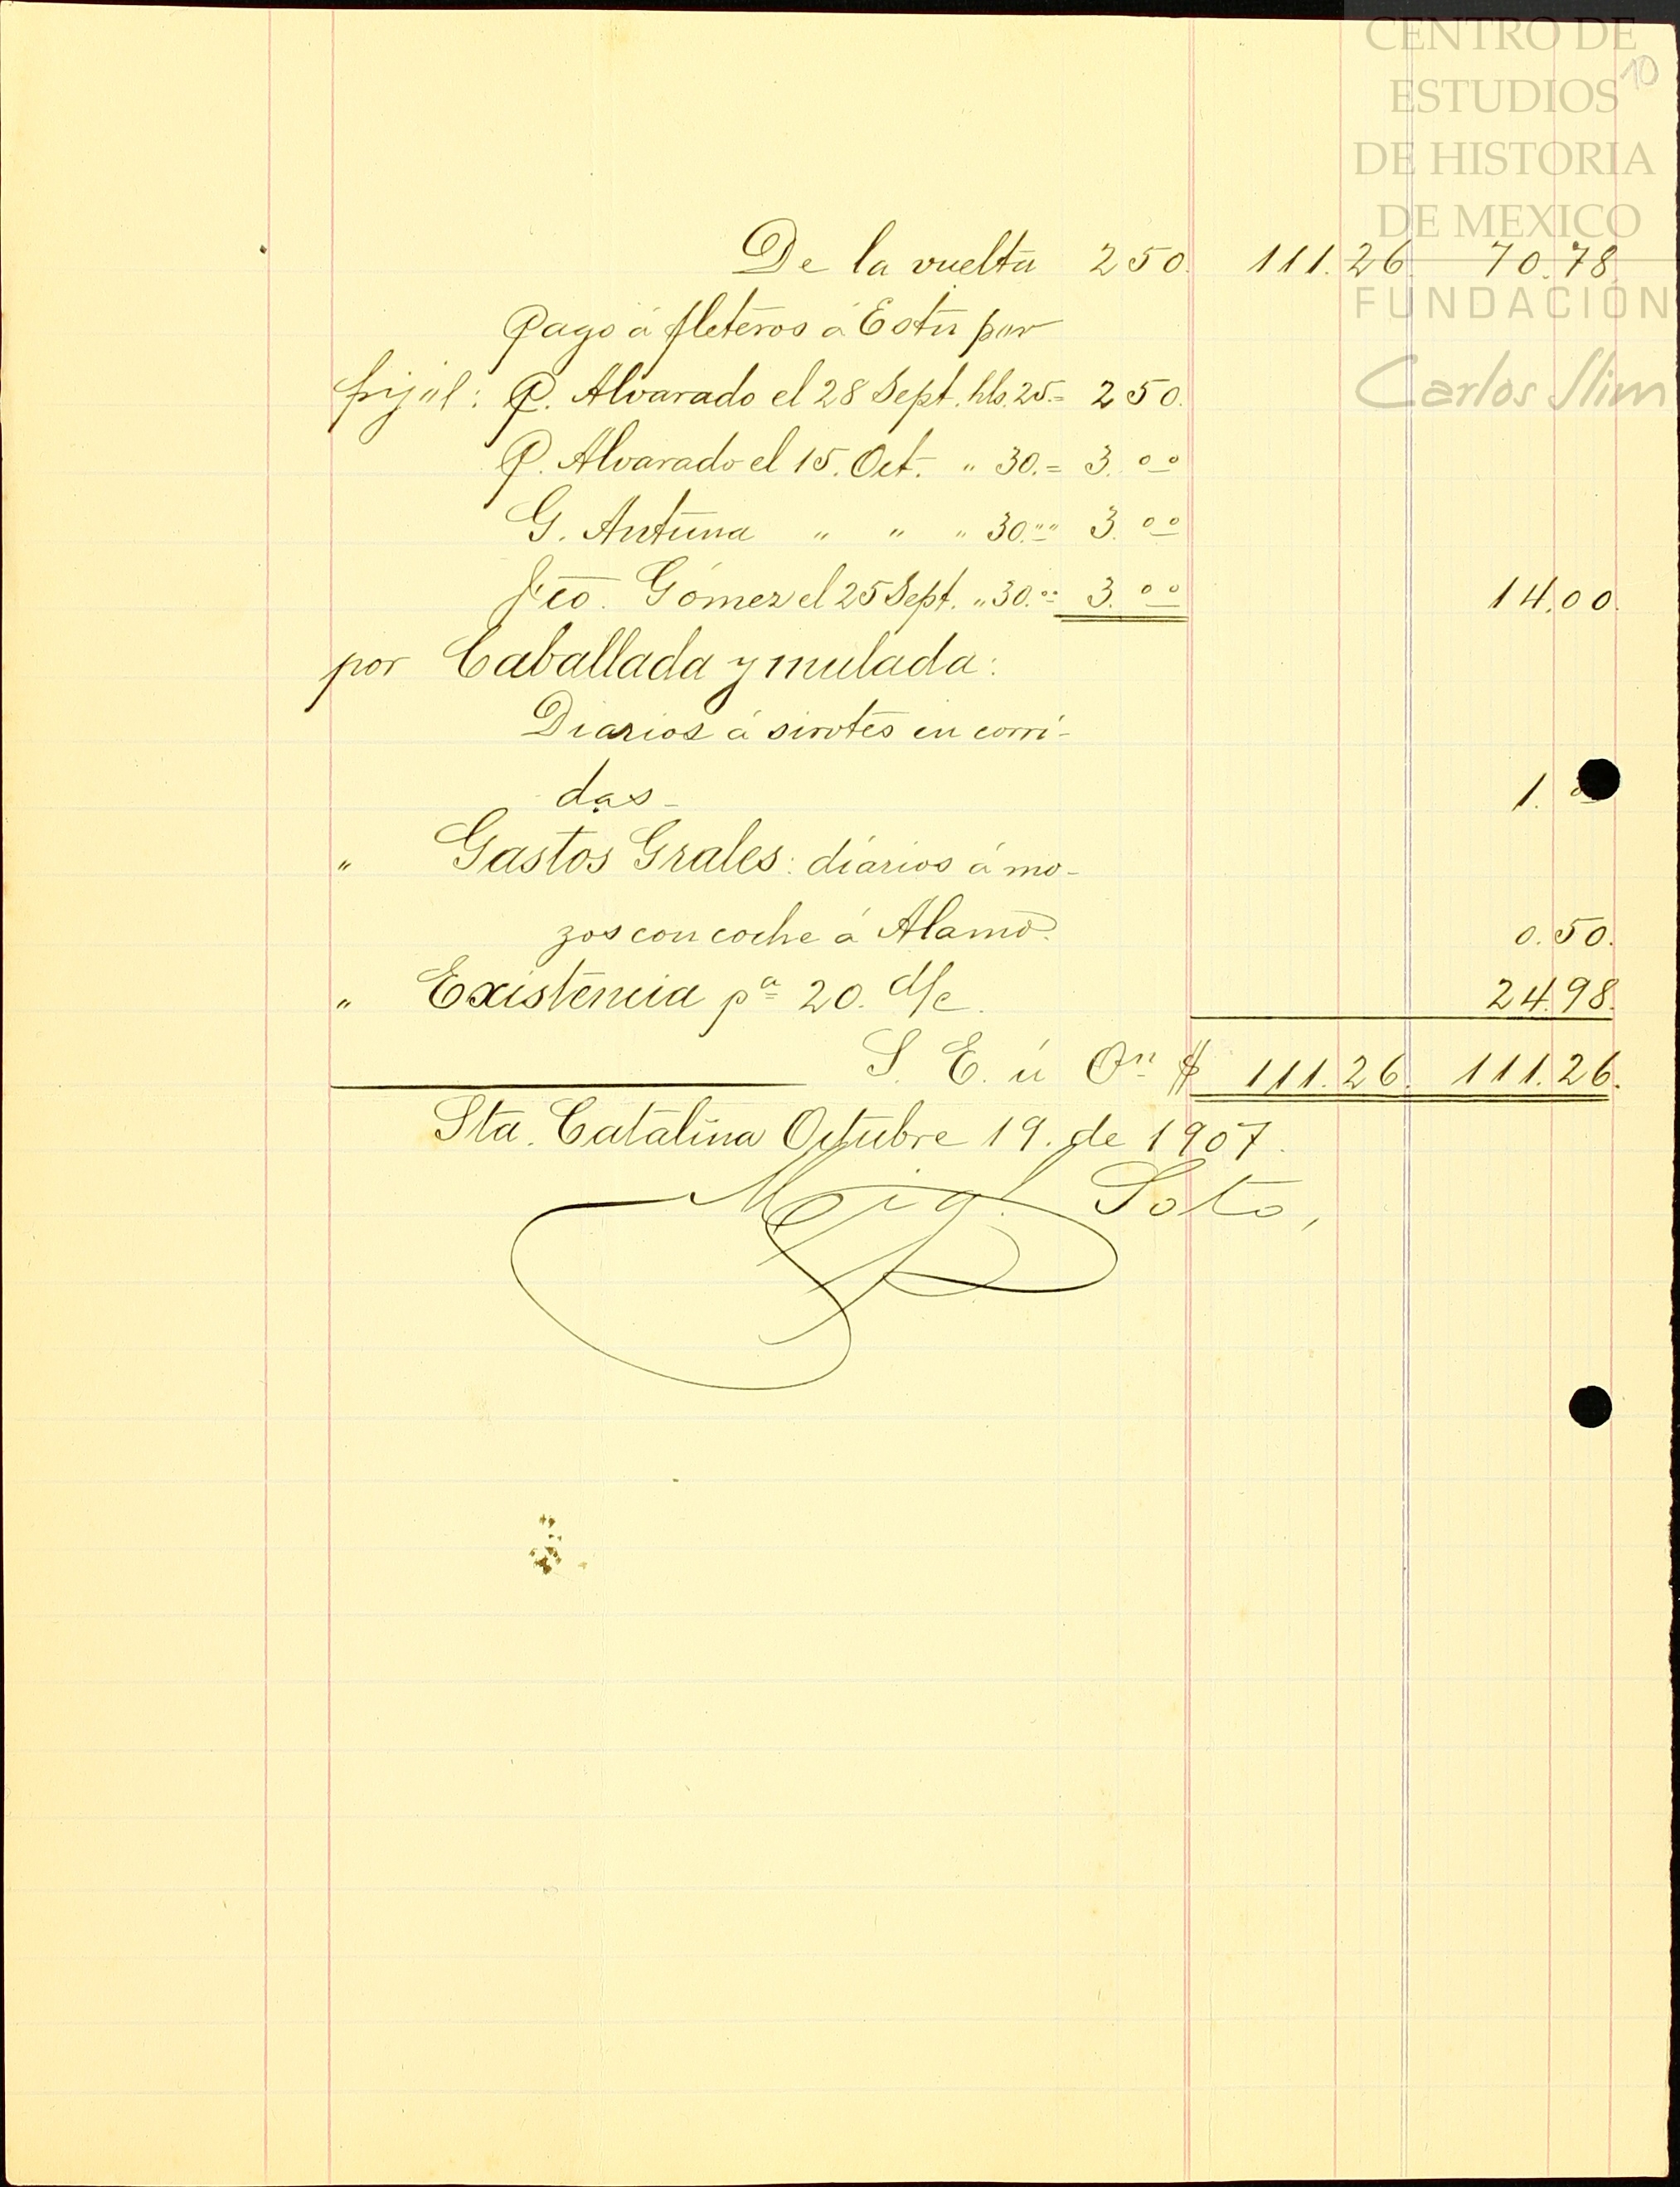 CENTRO DE
ESTUDIOS
DE HISTORIA
DE MEXICO
FUNDACIÓN
Carlos Slim
10
De la vuelta 250. 111.26. 70.78
Pago á fleteros á Estn por
frijol: P. Alvarado el 28 Sept. hls. 25.= 250.
P. Alvarado el 15. Oct. " 30.= 3.00
G. Antuna " " " 30.00 3.00
Fco. Gómez el 25 Sept. " 30.00 3.00 14.00.
por Caballada y mulada:
Diarios á sirotes en corri-
das- 1.
" Gastos Grales: diarios á mo-
zos con coche á Alamo. 0.50.
" Existencia pa 20. d/c. 24.98.
S. E. ú On $ 111.26. 111.26.
Sta. Catalina Octubre 19. de 1907.
Migl Soto,